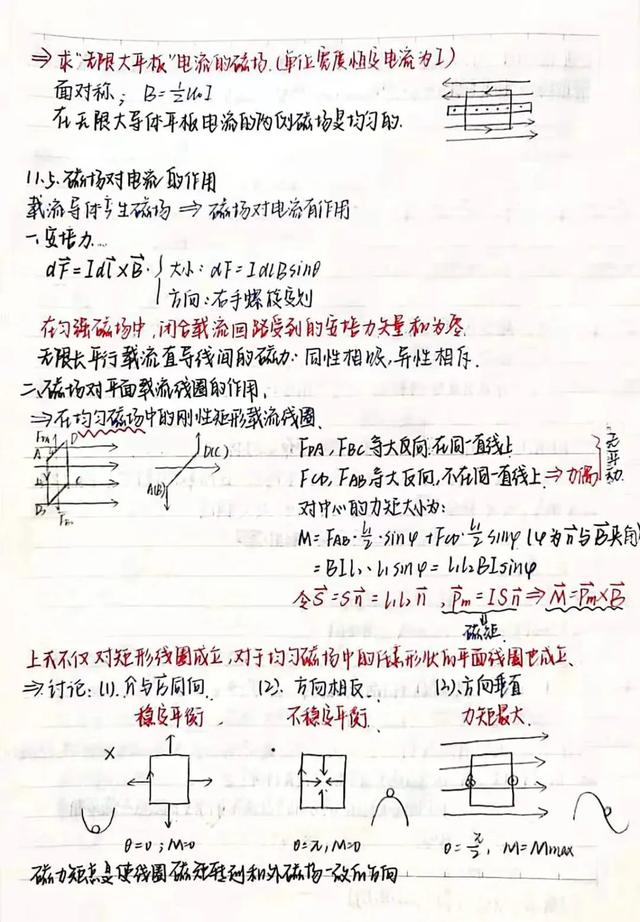 ⇒ 求"无限大平板"电流的磁场.(单位宽度恒定电流为I)
面对称; B=½μ₀I
在无限大导体平板电流的两侧磁场是均匀的.
11.5. 磁场对电流的作用
载流导体产生磁场 ⇒ 磁场对电流有作用
一.安培力...
dF⃗=Idl⃗×B⃗. { 大小: dF=IdlBsinθ
方向: 右手螺旋定则
在匀强磁场中,闭合载流回路受到的安培力矢量和为零.
无限长平行载流直导线间的磁力: 同性相吸,异性相斥.
二.磁场对平面载流线圈的作用.
⇒在均匀磁场中的刚性矩形载流线圈.
F_DA D A B C D(C) A(B)
F_DA, F_BC等大反向,在同一直线上
F_CD, F_AB等大反向,不在同一直线上 ⇒ 力偶 } 无平动
对中心的力矩大小为:
M=F_AB·l₁/2·sinφ+F_CD·l₁/2 sinφ (φ为n⃗与B⃗夹角)
=BIl₂·l₁sinφ=l₁l₂BIsinφ
令S⃗=Sn⃗=l₁l₂n⃗, P⃗m=ISn⃗ ⇒ M⃗=P⃗m×B⃗
磁矩.
上式不仅对矩形线圈成立,对于均匀磁场中的任意形状的平面线圈也成立.
⇒ 讨论: (1). n⃗与B⃗同向. (2). 方向相反. (3).方向垂直
稳定平衡. 不稳定平衡. 力矩最大.
θ=0; M=0 θ=π, M=0 θ=π/2, M=Mmax
磁力矩总是使线圈磁矩转到和外磁场一致的方向